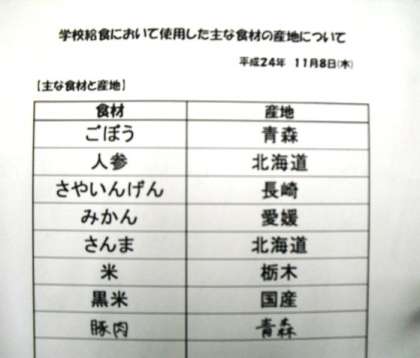 学校給食において使用した主な食材の産地について
平成24年 11月8日(木)
【主な食材と産地】
食材 産地
ごぼう 青森
人参 北海道
さやいんげん 長崎
みかん 愛媛
さんま 北海道
米 栃木
黒米 国産
豚肉 青森